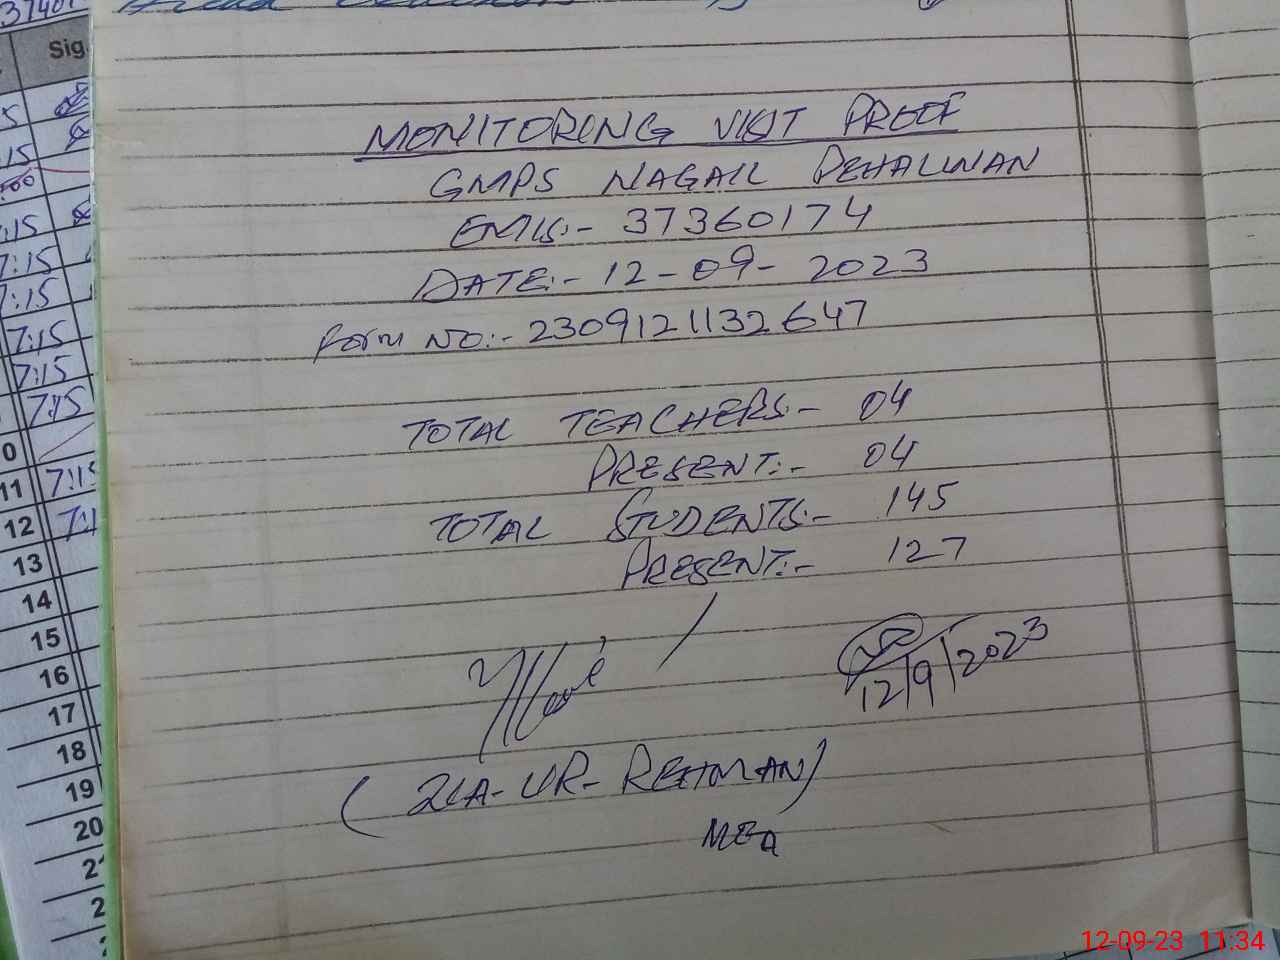 37401
Sig
MONITORING VISIT PROOF
GMPS NAGAIL PEHALWAN
EMIS:- 37360174
DATE:- 12-09-2023
Form NO:- 2309121132647
TOTAL TEACHERS:- 04
PRESENT:- 04
TOTAL STUDENTS:- 145
PRESENT:- 127
12/9/2023
(ZIA-UR-REHMAN)
MEA
:15
7:15
7:15
7:15
7:15
7:15
0
11 7:15
12 7:1
13
14
15
16
17
18
19
20
2
2
12-09-23 11:34